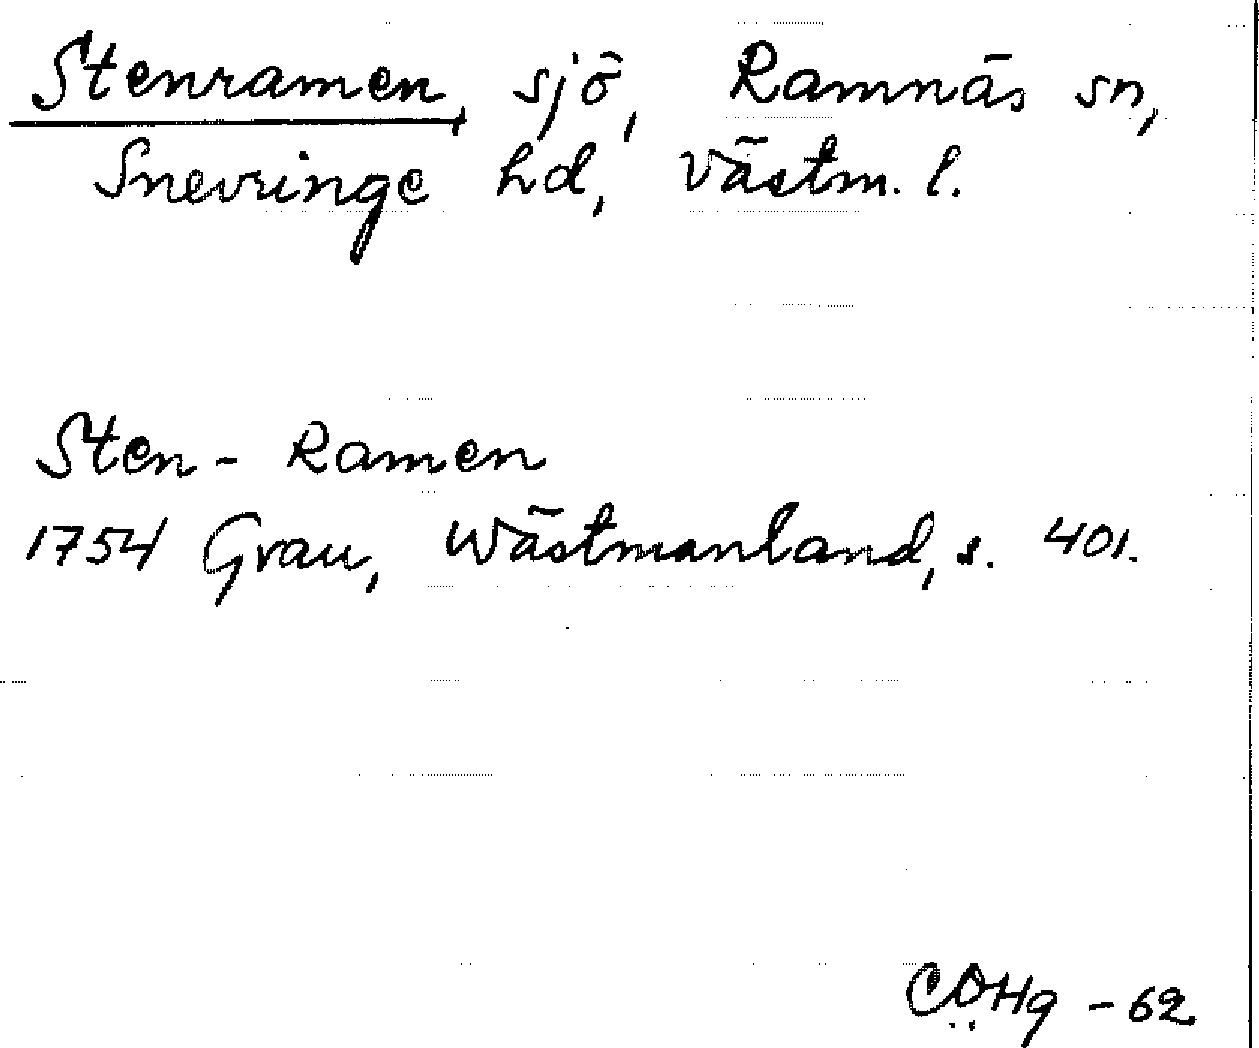 Stenramen, sjö, Ramnäs sn,
Snevringe hd, Västm. l.
Sten-Ramen
1754 Grau, Wästmanland, s. 401.
CÖHg -62